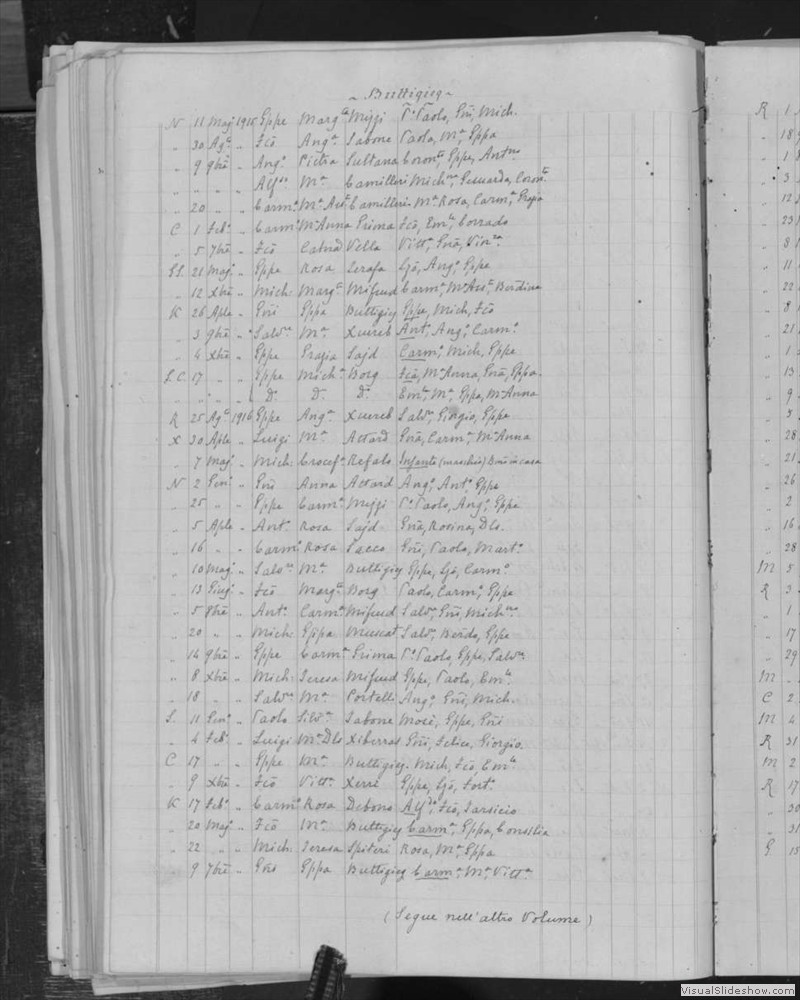 ~ Buttigieg ~
N 11 Maj. 1915 Gppe Marg.ta Mizzi P.o Paolo, Gni, Mich.
" 30 Ag.to " Fco Ang.a Tabone Paolo, M.a Gppa
" 9 9bre " Ang.o Pietra Sultana Coron.to Gppe, Ant.no
" " " " Alf.do M.a Camilleri Mich.na, Coron.ta
" 20 " " Carm.o M.a Ass.ta Camilleri M.a Rosa, Carm.a Grazia
C 1 Feb.o " Carm.o M.a Anna Grima Fco, Em.le Corrado
" 5 7bre " Fco Catna Vella Vitt.a Gna, Vin.za
G.L. 21 Maj. " Gppe Rosa Zerafa Ljo, Ang.o Gppe
" 12 Xbre " Mich. Marg.ta Mifsud Carm.a M.a Ass.ta Berdina
K 26 Aple " Gni Gppa Buttigieg Gppe, Mich, Fco
" 3 9bre " Salv.re M.a Xuereb Ant.o Ang.o Carm.o
" 4 Xbre " Gppe Grazia Sajd Carm.o Mich, Gppe
L.C. 17 " " Gppe Mich.a Borg Fca, M.a Anna, Gna, Gppa
" " " " D.o D.o D.o Em.la, M.a Gppa, M.a Anna
R 25 Ag.to 1916 Gppe Ang.a Xuereb Salv.re Giorgio, Gppe
X 30 Aple " Luigi M.a Attard Gna, Carm.a M.a Anna
" 7 Maj. " Mich. Crocef.a Refalo Infante (maschio) in casa
N 2 Gen.o " Gni Anna Attard Ang.o Ant.o Gppe
" 25 " " Gppe Carm.a Mizzi P.o Paolo, Ang.o Gppe
" 5 Aple " Ant.o Rosa Sajd Gna, Rosina, Dls.
" 16 " " Carm.o Rosa Sacco Gni, Paolo, Mart.o
" 10 Mag.o " Salv.re M.a Buttigieg Gppe, Ljo, Carm.o
" 13 Giug.o " Fco Marg.ta Borg Paolo, Carm.o Gppe
" 5 8bre " Ant.o Carm.a Mifsud Salv.a Gni, Mich.na
" 20 " " Mich. Gppa Muscat Salv.re Berdo, Gppe
" 14 9bre " Gppe Carm.a Grima P.o Paolo, Gppe, Salv.re
" 8 Xbre " Mich. Teresa Mifsud Gppe, Paolo, Em.le
" 18 " " Salv.re M.a Portelli Ang.o Gni, Mich.
L. 11 Gen.o " Paolo Silv.a Tabone Mosè, Gppe, Gni
" 4 Feb.o " Luigi M.a Dls Xiberras Gni, Felice, Giorgio.
C 17 " " Gppe M.a Buttigieg. Mich, Fco, Em.le
" 9 Xbre " Fco Vitt.a Xerri Gppe, Ljo, Fort.o
K 17 Feb.o " Carm.o Rosa Debono Alf.do, Fco, Tarsicio
" 20 Maj. " Fco M.a Buttigieg Carm.a, Gppa, Consilia
" 22 " " Mich. Teresa Spiteri Rosa, M.a, Gppa
" 9 7bre " Gni Gppa Buttigieg Carm.a, M.a, Vitt.a
(Segue nell'altro Volume)
R 1
" 18
" 1
" 3
" 12
" 23
" 8
" 11
" 22
" 8
" 21
" 1
" 13
" 9
" 5
" 28
" 21
" 26
" 2
" 16
" 28
M 5
R 3
" 1
" 17
" 29
M
C 2
M 4
R 31
M 2
R 17
" 30
" 31
G 15
VisualSlideshow.com